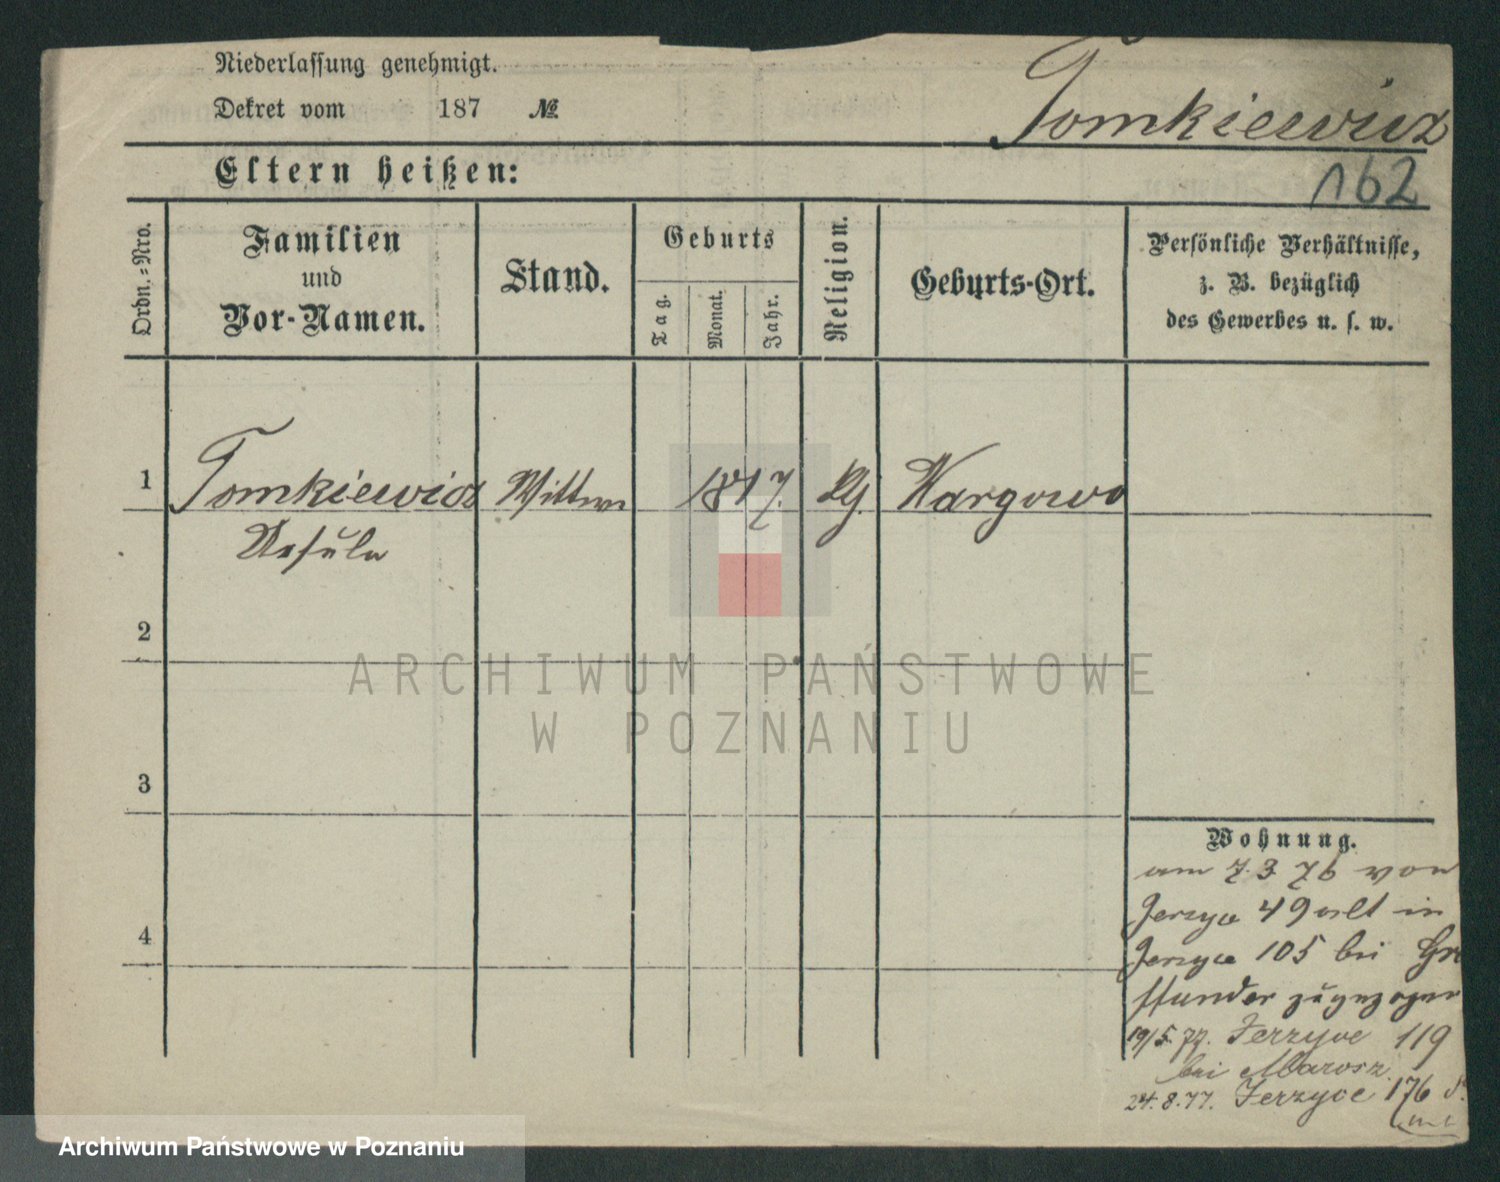 Niederlassung genehmigt.
Dekret vom 187 №
Tomkiewicz
162
Eltern heißen:
Ordn.=Nro.
Familien
und
Vor-Namen.
Stand.
Geburts
Tag.
Monat.
Jahr.
Religion.
Geburts-Ort.
Persönliche Verhältnisse,
z. B. bezüglich
des Gewerbes u. s. w.
1 Tomkiewicz Wittwe 1817. Wargowo
Ursula
2
3
4
ARCHIWUM PAŃSTWOWE
W POZNANIU
Wohnung.
am 7. 3 76 von
Jerzyce 49 alt in
Jerzyce 105 bei
zugezogen
19/5. 77. Jerzyce 119
bei Marosz
24. 8. 77. Jerzyce 176
Archiwum Państwowe w Poznaniu